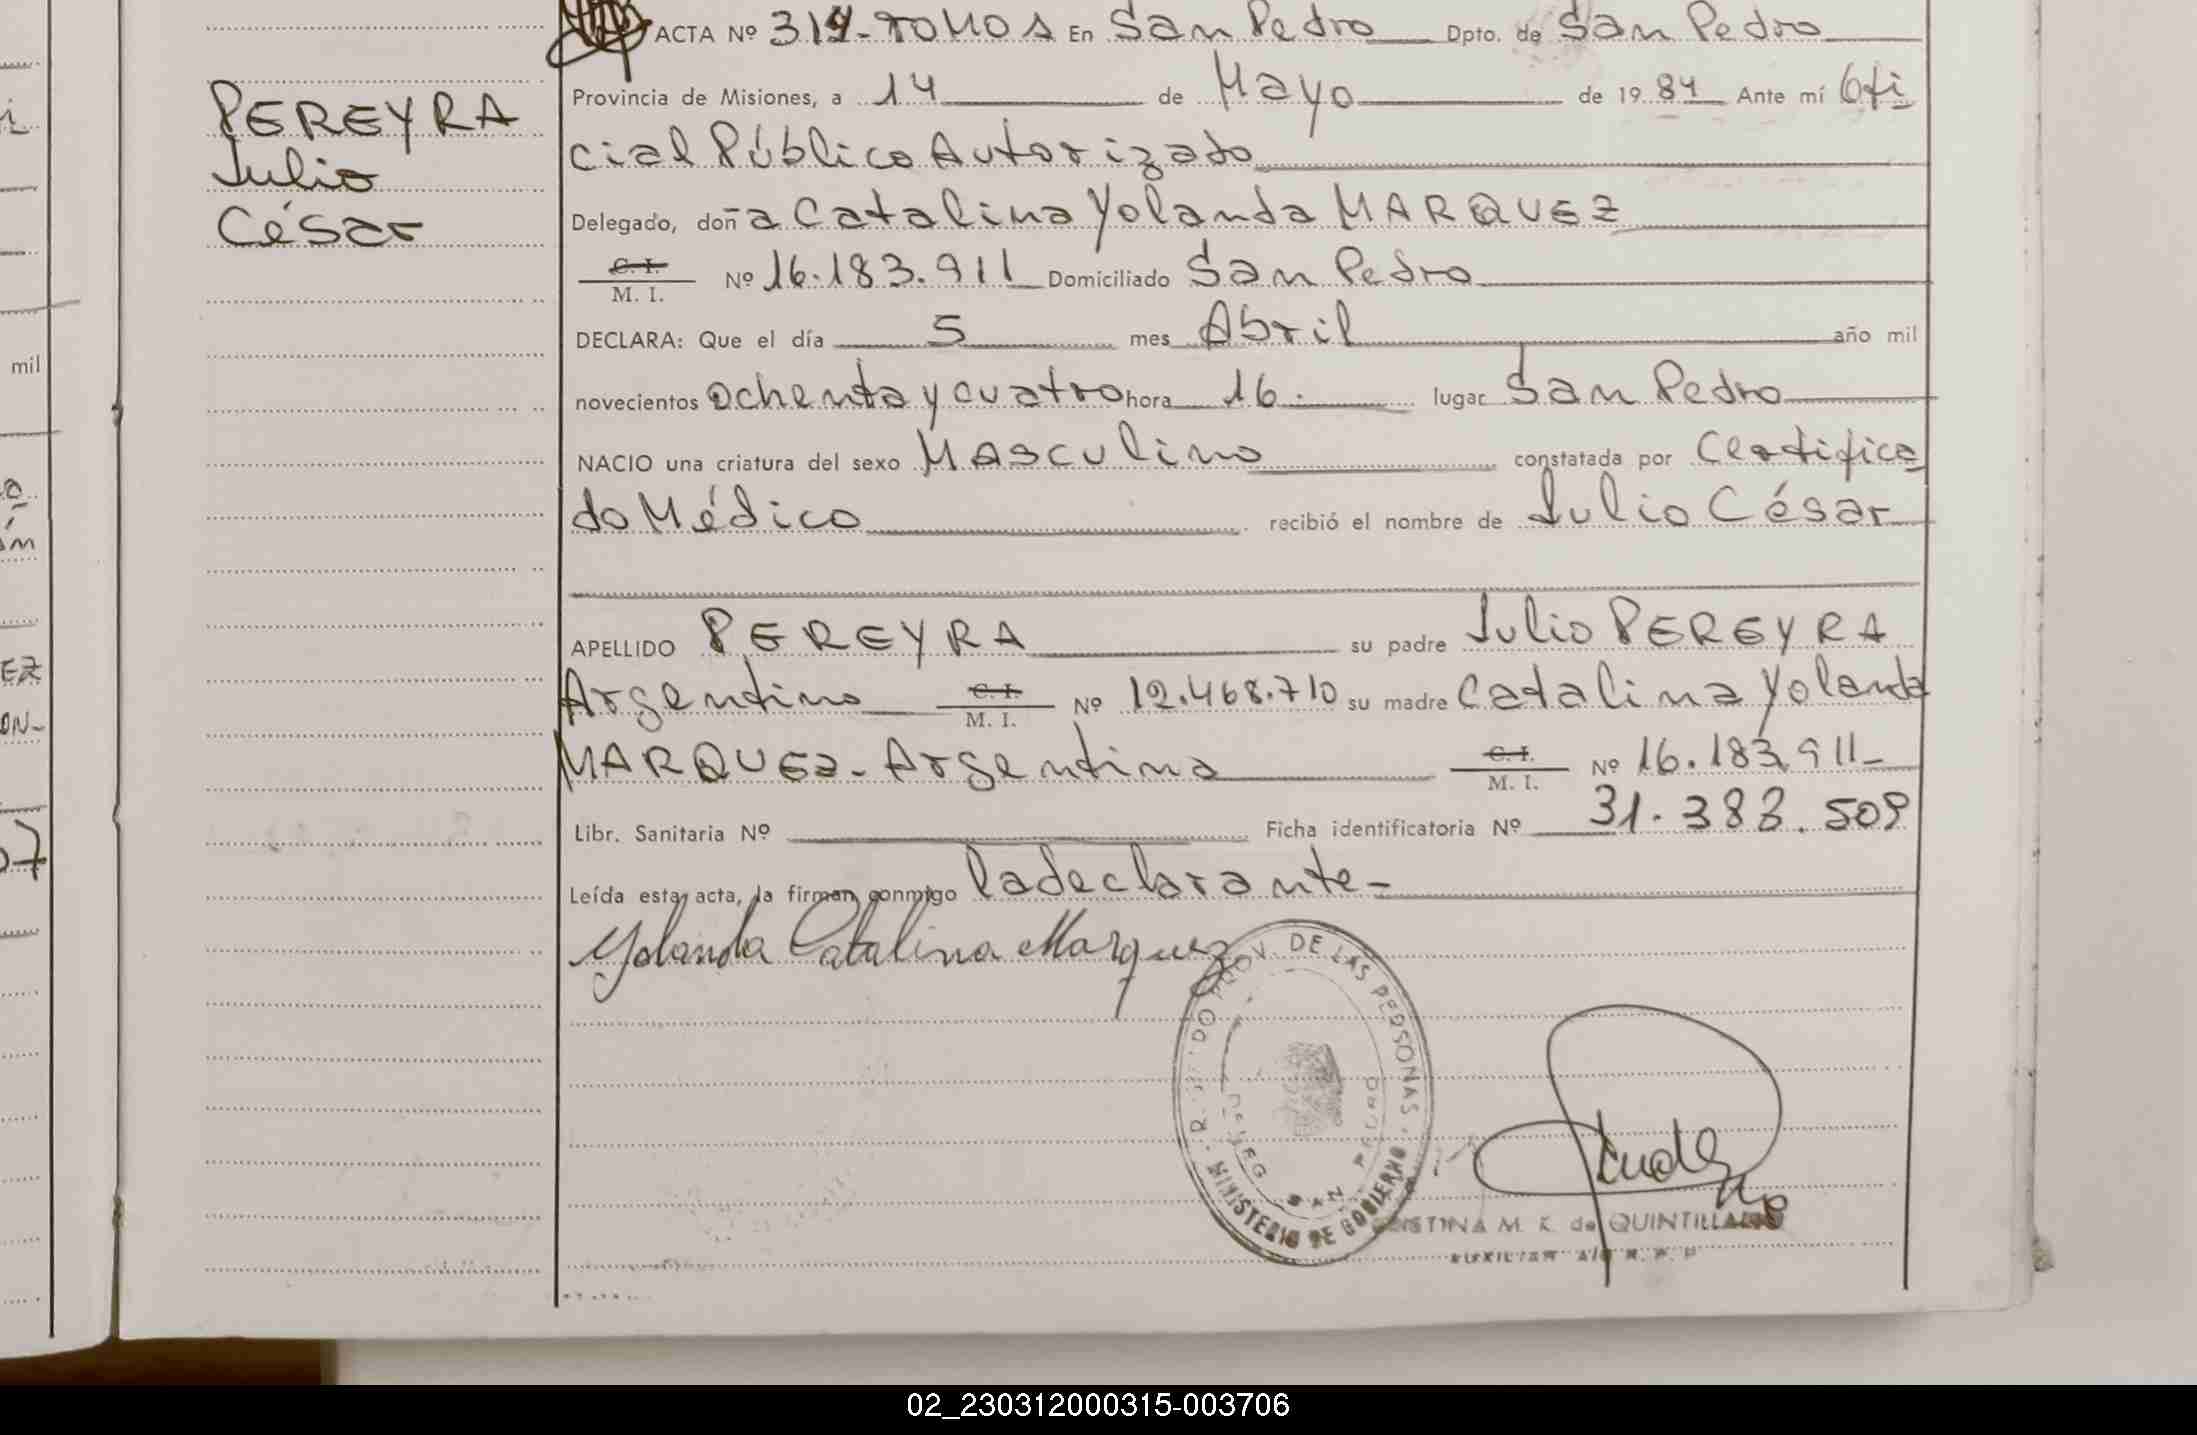 ACTA Nº 314-TOMO 1 En San Pedro Dpto. de San Pedro
Provincia de Misiones, a 14 de Mayo de 1984 Ante mí Ofi
cial Público Autorizado
Delegado, doña Catalina Yolanda MARQUEZ
C. I.
M. I. Nº 16.183.911 Domiciliado San Pedro
DECLARA: Que el día 5 mes Abril año mil
novecientos ochenta y cuatro hora 16. lugar San Pedro
NACIO una criatura del sexo Masculino constatada por Certifica
do Médico recibió el nombre de Julio César
APELLIDO PEREYRA su padre Julio PEREYRA
Argentino C. I. M. I. Nº 12.468.710 su madre Catalina Yolanda
MARQUEZ - Argentina C. I. M. I. Nº 16.183.911-
Libr. Sanitaria Nº Ficha identificatoria Nº 31.383.509
Leída esta acta, la firman conmigo la declarante-
Yolanda Catalina Marquez
PEREYRA
Julio
César
PROV. DE LAS PERSONAS
SAN PEDRO
MINISTERIO DE GOBIERNO
M. K. de QUINTILLA
AUXILIAR
mil
EZ
ON-
02_230312000315-003706